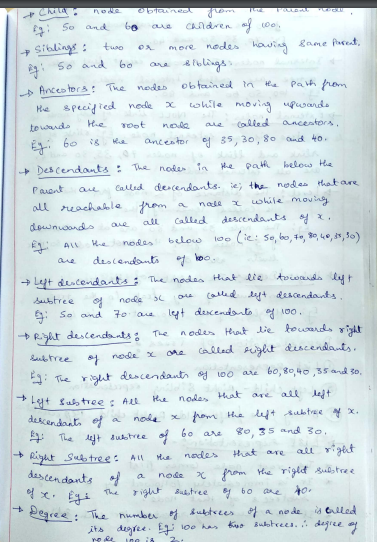 → Child : node obtained from the parent node.
Eg: 50 and 60 are children of 100.
→ Siblings : two or more nodes having same parent.
Eg: 50 and 60 are siblings.
→ Ancestors : The nodes obtained in the path from
the specified node x while moving upwards
towards the root node are called ancestors.
Eg: 60 is the ancestor of 35, 30, 80 and 40.
→ Descendants : The nodes in the path below the
parent are called descendants. ie; the nodes that are
all reachable from a node x while moving
downwards are all called descendants of x.
Eg: All the nodes below 100 (ie: 50, 60, 70, 80, 40, 35, 30)
are descendants of 100.
→ Left descendants : The nodes that lie towards left
subtree of node x are called left descendants.
Eg: 50 and 70 are left descendants of 100.
→ Right descendants : The nodes that lie towards right
subtree of node x are called right descendants.
Eg: The right descendants of 100 are 60, 80, 40, 35 and 30.
→ Left Subtree : All the nodes that are all left
descendants of a node x from the left subtree of x.
Eg: The left subtree of 60 are 80, 35 and 30.
→ Right Subtree : All the nodes that are all right
descendants of a node x from the right subtree
of x. Eg: The right subtree of 60 are 40.
→ Degree : The number of subtrees of a node is called
its degree. Eg: 100 has two subtrees. ∴ degree of
node 100 is 2.